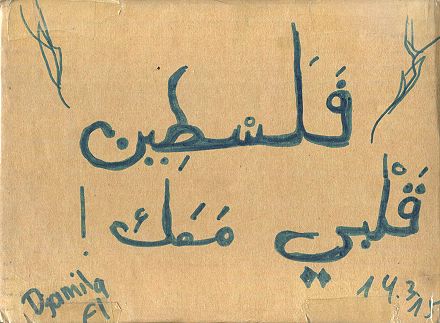 فَلَسْطِين
قَلْبي مَعَك !
Djamila
14.3.15